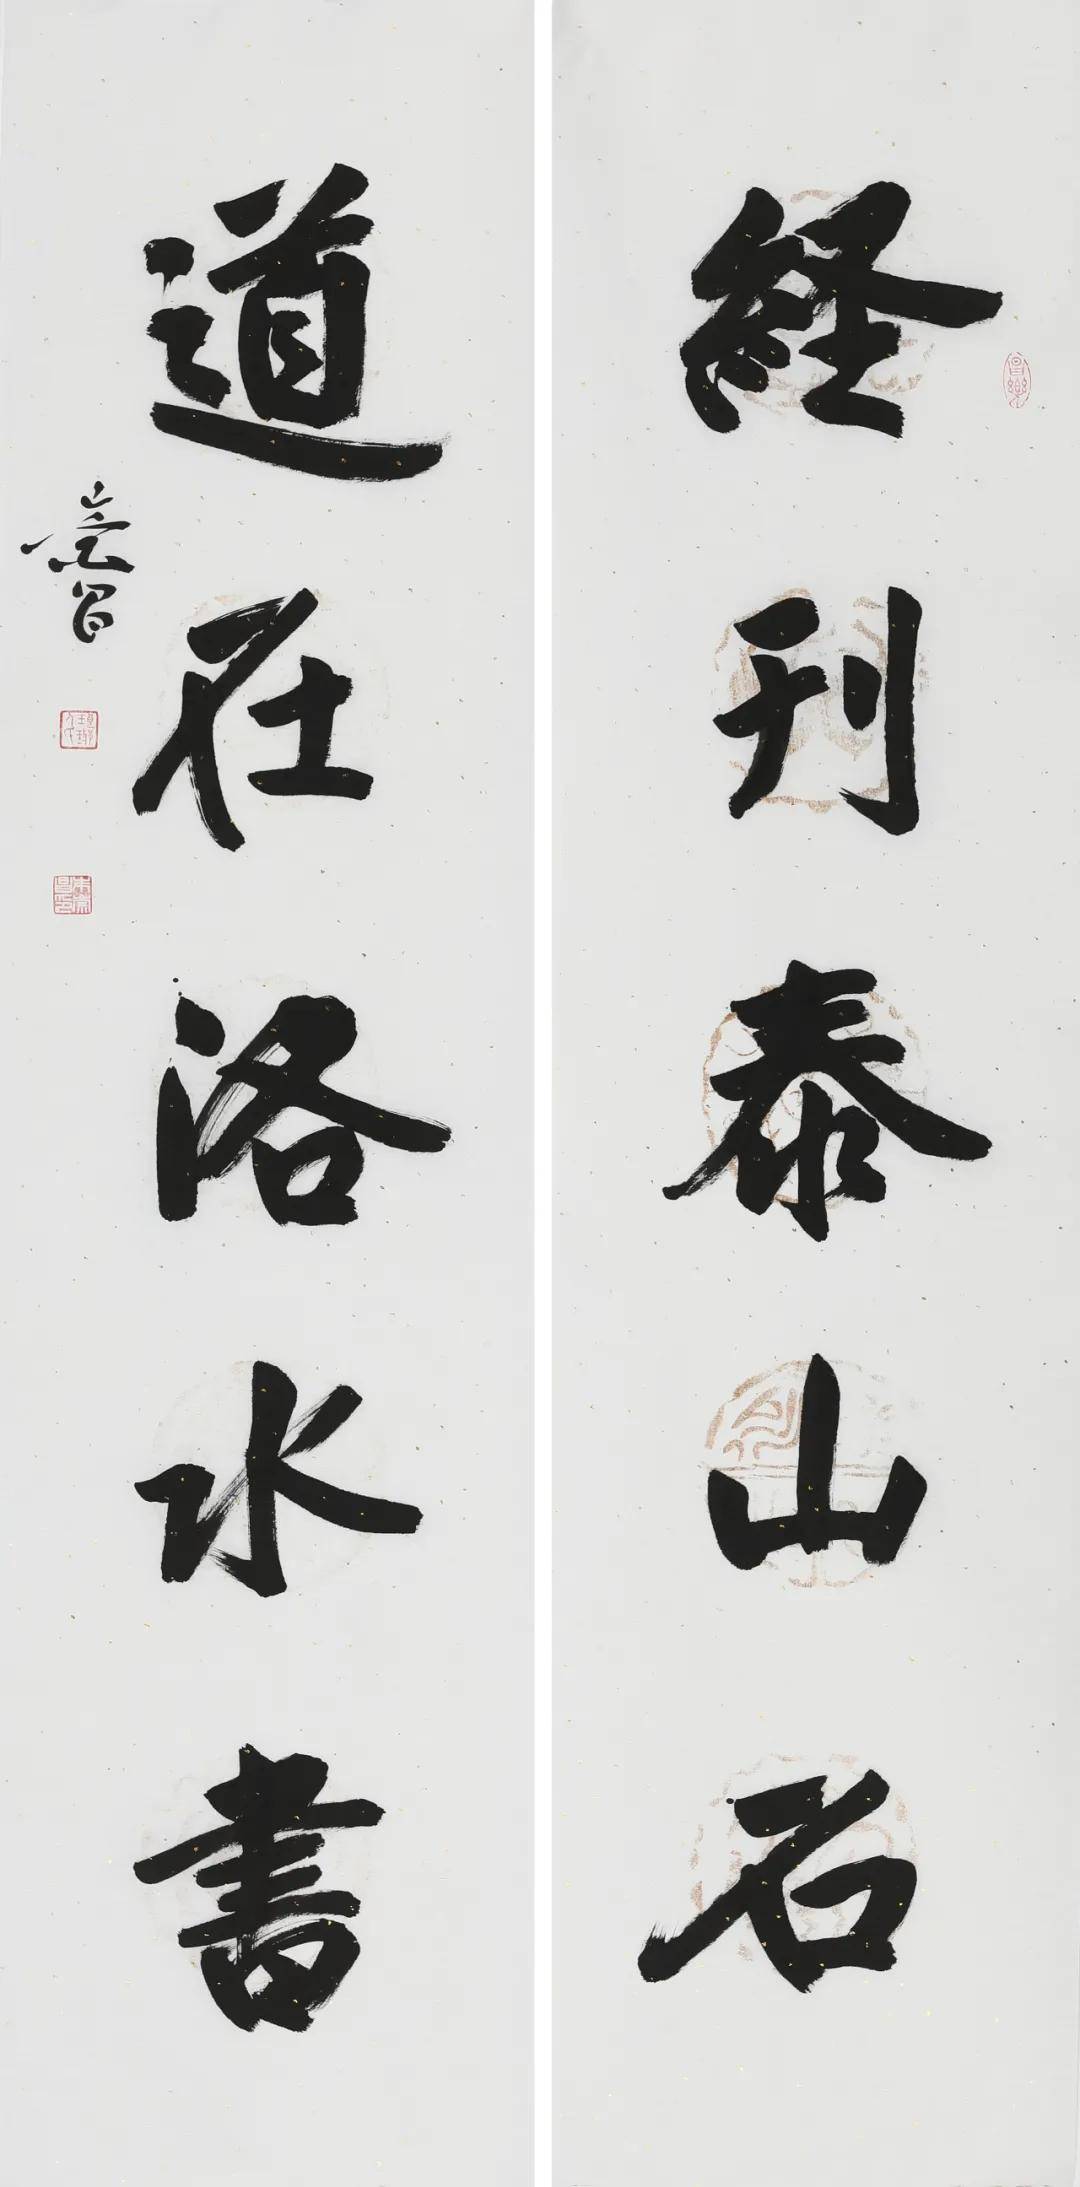 経刊泰山石
道在洛水書